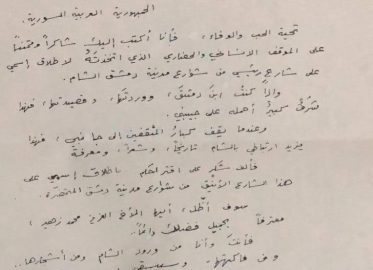 الجمهورية العربية السورية.
تحية الحب والوفاء، فأنا أكتب إليك شاكراً وممتناً
على الموقف الإنساني والحضاري الذي اتخذتَهُ لإطلاق اسمي
على شارعٍ رئيسي من شوارع مدينة دمشق الشام.
وإذا كنتُ ابنَ دمشق، ووردتَها، وقصيدتَها، فهذا
شرفٌ كبيرٌ أحمله على جبيني.
وعندما يقف كبارُ المثقفين إلى جانبي، فهذا
يزيد ارتباطي بالشام تاريخاً، وشعراً، ومعرفةً
فألف شكر على اقتراحكم بإطلاق إسمي على
هذا الشارع الأنيق من شوارع مدينة دمشق المتحضرة.
سوف أظل، أيها الأخ العزيز محمد زهير،
معترفاً بجميل فضلك دائماً.
فأنتَ وأنا من ورود الشام ومن أشجارها..
ومن فاكهتها،